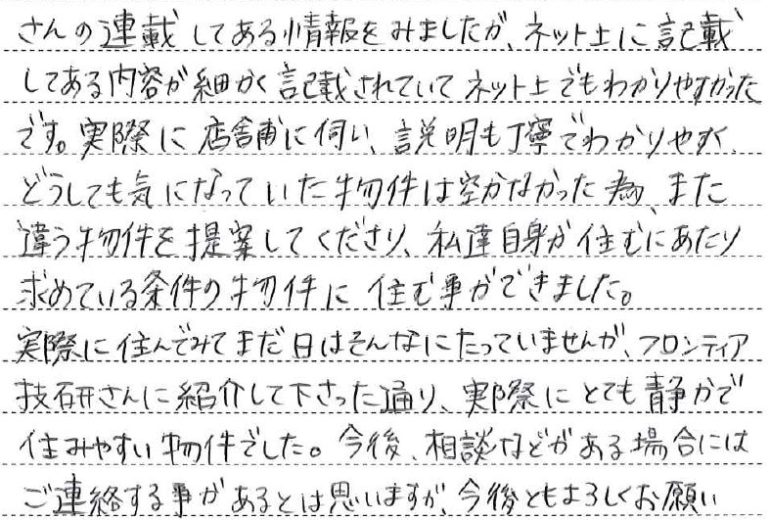 さんの連載してある情報をみましたが、ネット上に記載
してある内容が細かく記載されていてネット上でもわかりやすかった
です。実際に店舗に伺い、説明も丁寧でわかりやすく、
どうしても気になっていた物件は空かなかった為、また
違う物件を提案してくださり、私達自身が住むにあたり
求めている条件の物件に住む事ができました。
実際に住んでみてまだ日はそんなにたっていませんが、フロンティア
技研さんに紹介して下さった通り、実際にとても静かで
住みやすい物件でした。今後、相談などがある場合には
ご連絡する事があるとは思いますが、今後ともよろしくお願い